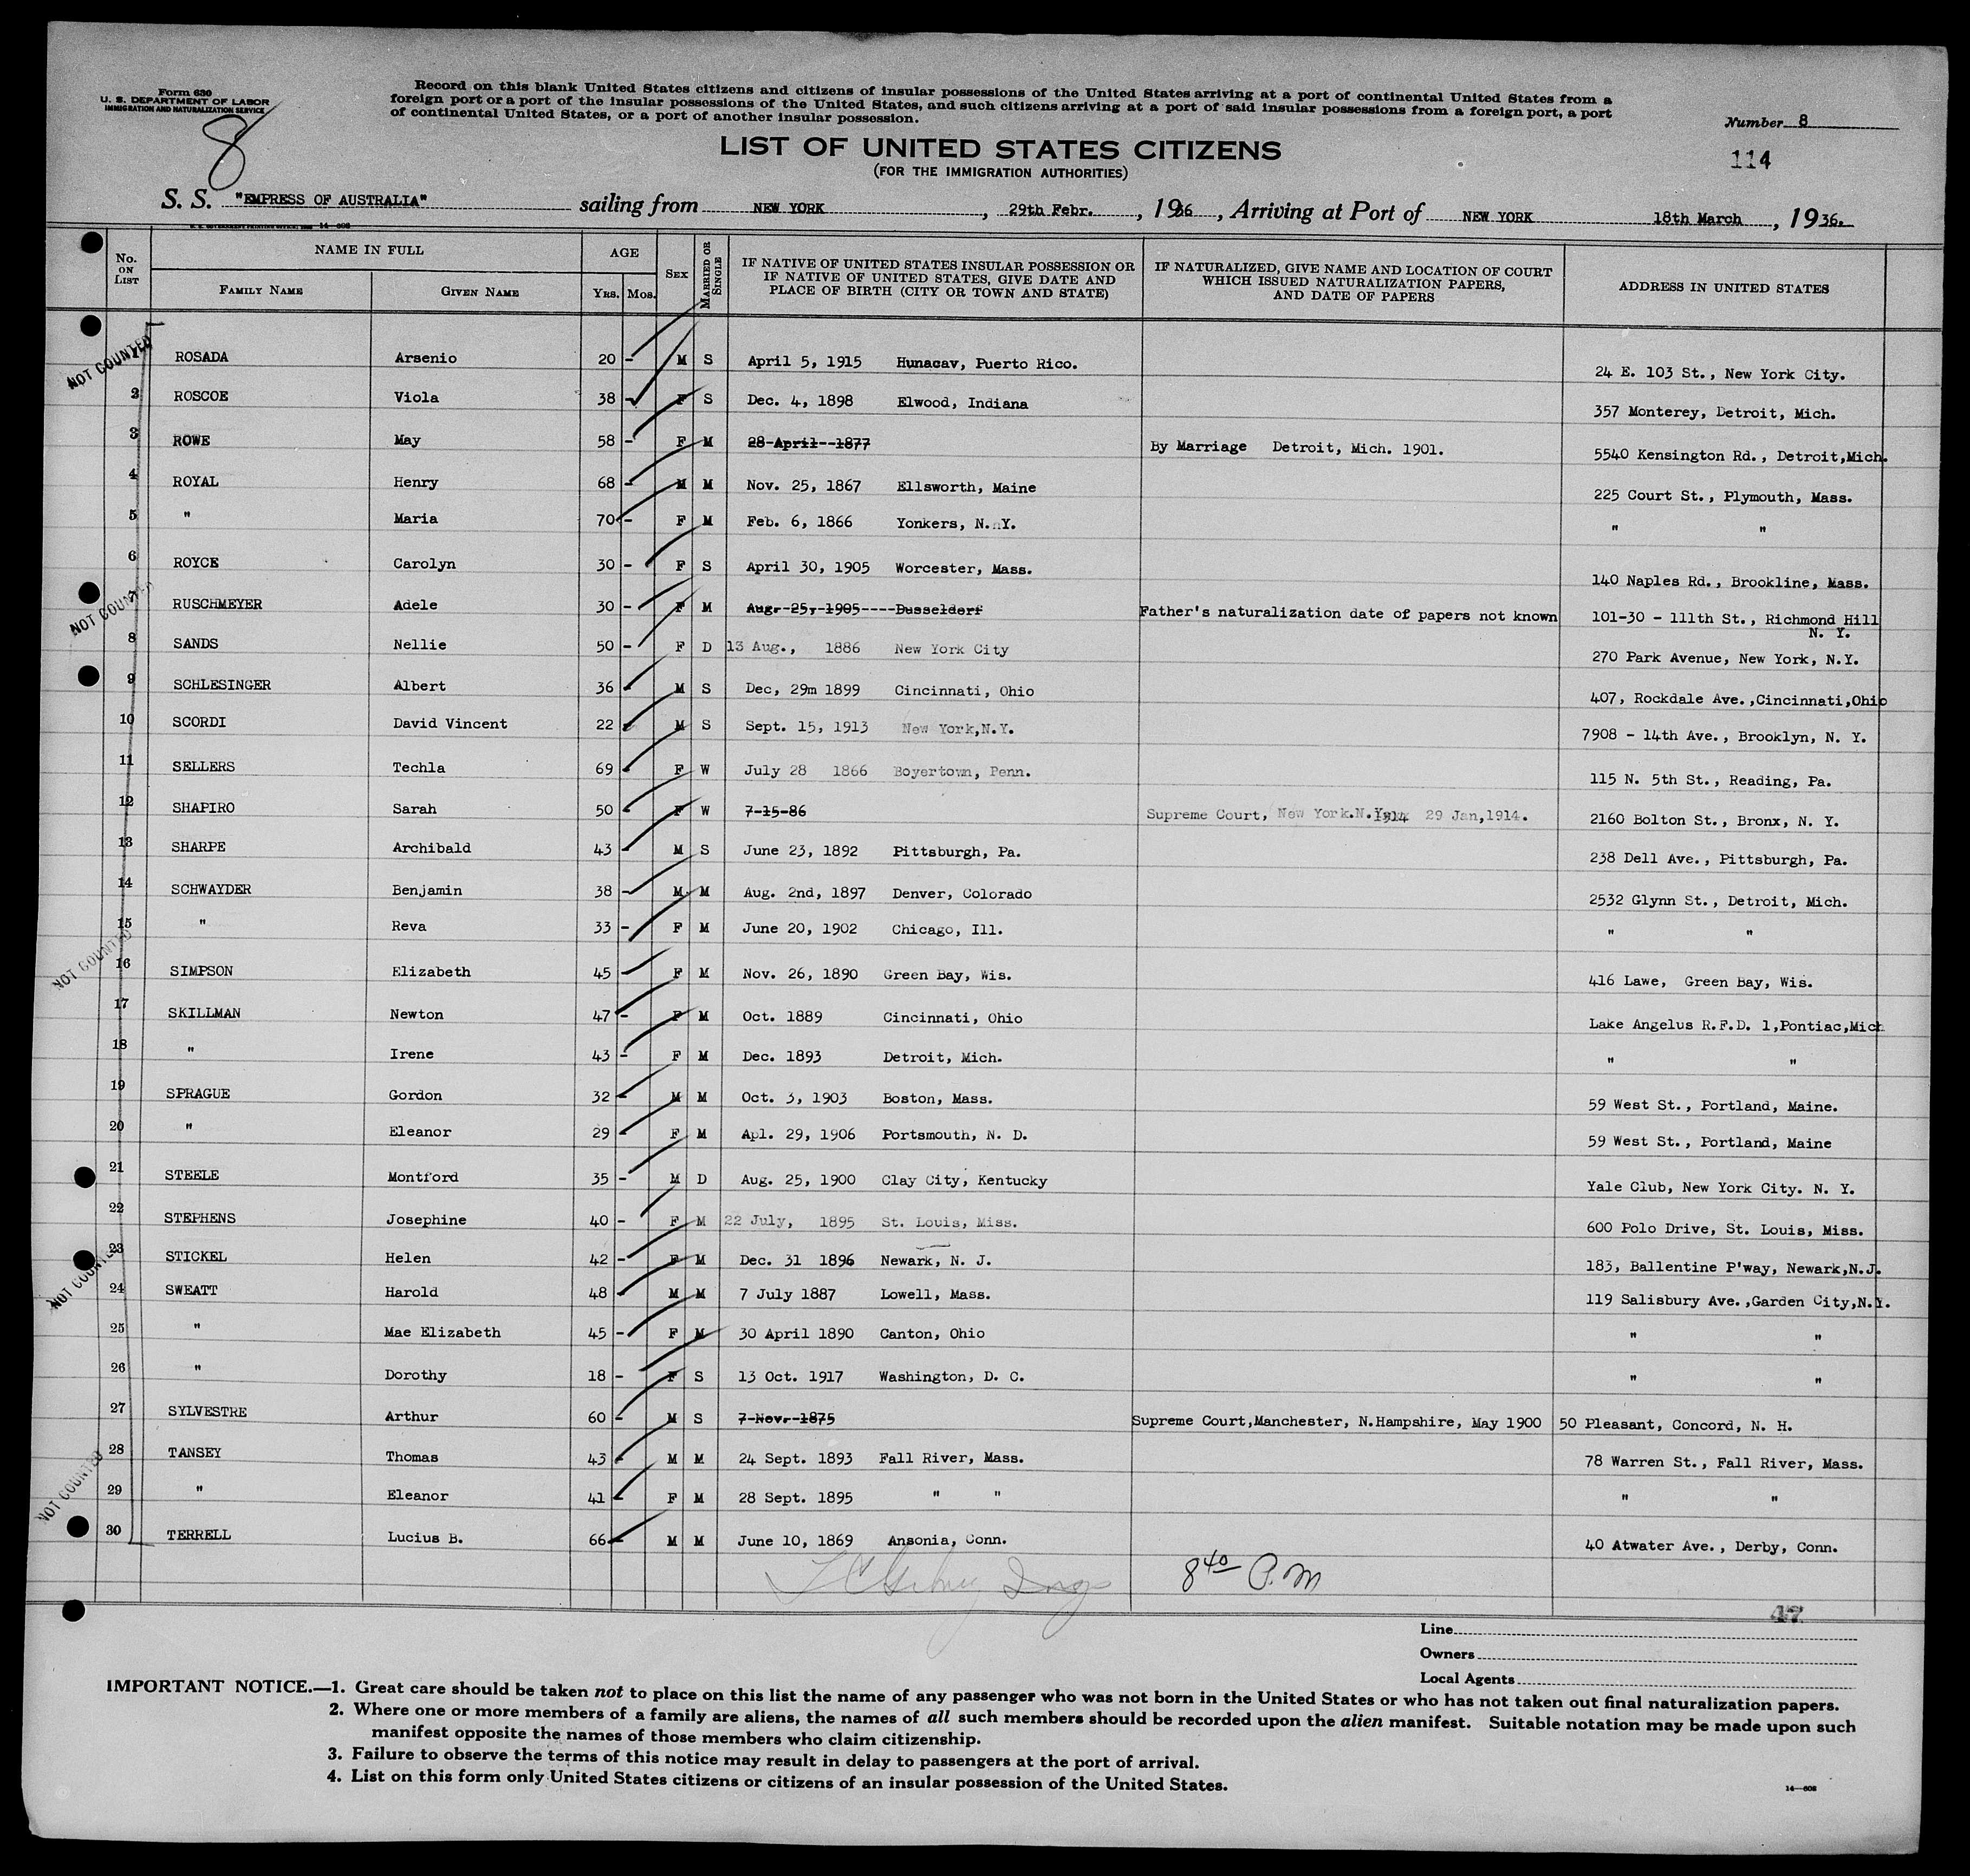 Form 630
U. S. DEPARTMENT OF LABOR
IMMIGRATION AND NATURALIZATION SERVICE
8
Record on this blank United States citizens and citizens of insular possessions of the United States arriving at a port of continental United States from a
foreign port or a port of the insular possessions of the United States, and such citizens arriving at a port of said insular possessions from a foreign port, a port
of continental United States, or a port of another insular possession.
Number 8
114
LIST OF UNITED STATES CITIZENS
(FOR THE IMMIGRATION AUTHORITIES)
S. S. "EMPRESS OF AUSTRALIA" sailing from NEW YORK, 29th Febr., 1936, Arriving at Port of NEW YORK 18th March, 1936.
No. ON LIST NAME IN FULL FAMILY NAME GIVEN NAME AGE YRS. MOS. SEX MARRIED OR SINGLE IF NATIVE OF UNITED STATES INSULAR POSSESSION OR IF NATIVE OF UNITED STATES, GIVE DATE AND PLACE OF BIRTH (CITY OR TOWN AND STATE) IF NATURALIZED, GIVE NAME AND LOCATION OF COURT WHICH ISSUED NATURALIZATION PAPERS, AND DATE OF PAPERS ADDRESS IN UNITED STATES
NOT COUNTED
1 ROSADA Arsenio 20 - M S April 5, 1915 Hunacav, Puerto Rico. 24 E. 103 St., New York City.
2 ROSCOE Viola 38 - F S Dec. 4, 1898 Elwood, Indiana 357 Monterey, Detroit, Mich.
3 ROWE May 58 - F M 28-April--1877 By Marriage Detroit, Mich. 1901. 5540 Kensington Rd., Detroit,Mich.
4 ROYAL Henry 68 - M M Nov. 25, 1867 Ellsworth, Maine 225 Court St., Plymouth, Mass.
5 " Maria 70 - F M Feb. 6, 1866 Yonkers, N. Y. " "
6 ROYCE Carolyn 30 - F S April 30, 1905 Worcester, Mass. 140 Naples Rd., Brookline, Mass.
NOT COUNTED
7 RUSCHMEYER Adele 30 - F M Aug.-25,-1905----Dusseldorf Father's naturalization date of papers not known 101-30 - 111th St., Richmond Hill N. Y.
8 SANDS Nellie 50 - F D 13 Aug., 1886 New York City 270 Park Avenue, New York, N.Y.
9 SCHLESINGER Albert 36 - M S Dec, 29m 1899 Cincinnati, Ohio 407, Rockdale Ave.,Cincinnati,Ohio
10 SCORDI David Vincent 22 - M S Sept. 15, 1913 New York,N.Y. 7908 - 14th Ave., Brooklyn, N. Y.
11 SELLERS Techla 69 - F W July 28 1866 Boyertown, Penn. 115 N. 5th St., Reading, Pa.
12 SHAPIRO Sarah 50 - F W 7-15-86 Supreme Court, New York.N.Y. 1914 29 Jan,1914. 2160 Bolton St., Bronx, N. Y.
13 SHARPE Archibald 43 - M S June 23, 1892 Pittsburgh, Pa. 238 Dell Ave., Pittsburgh, Pa.
14 SCHWAYDER Benjamin 38 - M M Aug. 2nd, 1897 Denver, Colorado 2532 Glynn St., Detroit, Mich.
15 " Reva 33 - F M June 20, 1902 Chicago, Ill. " "
NOT COUNTED
16 SIMPSON Elizabeth 45 - F M Nov. 26, 1890 Green Bay, Wis. 416 Lawe, Green Bay, Wis.
17 SKILLMAN Newton 47 - F M Oct. 1889 Cincinnati, Ohio Lake Angelus R.F.D. 1,Pontiac,Mich
18 " Irene 43 - F M Dec. 1893 Detroit, Mich. " "
19 SPRAGUE Gordon 32 - M M Oct. 3, 1903 Boston, Mass. 59 West St., Portland, Maine.
20 " Eleanor 29 - F M Apl. 29, 1906 Portsmouth, N. D. 59 West St., Portland, Maine
21 STEELE Montford 35 - M D Aug. 25, 1900 Clay City, Kentucky Yale Club, New York City. N. Y.
22 STEPHENS Josephine 40 - F M 22 July, 1895 St. Louis, Miss. 600 Polo Drive, St. Louis, Miss.
23 STICKEL Helen 42 - F M Dec. 31 1896 Newark, N. J. 183, Ballentine P'way, Newark,N.J.
NOT COUNTED
24 SWEATT Harold 48 - M M 7 July 1887 Lowell, Mass. 119 Salisbury Ave.,Garden City,N.Y.
25 " Mae Elizabeth 45 - F M 30 April 1890 Canton, Ohio " "
26 " Dorothy 18 - F S 13 Oct. 1917 Washington, D. C. " "
27 SYLVESTRE Arthur 60 - M S 7-Nov.-1875 Supreme Court,Manchester, N.Hampshire, May 1900 50 Pleasant, Concord, N. H.
28 TANSEY Thomas 43 - M M 24 Sept. 1893 Fall River, Mass. 78 Warren St., Fall River, Mass.
NOT COUNTED
29 " Eleanor 41 - F M 28 Sept. 1895 " " " "
30 TERRELL Lucius B. 66 - M M June 10, 1869 Ansonia, Conn. 40 Atwater Ave., Derby, Conn.
8 40 P.M
47
Line
Owners
Local Agents
IMPORTANT NOTICE.—1. Great care should be taken not to place on this list the name of any passenger who was not born in the United States or who has not taken out final naturalization papers.
2. Where one or more members of a family are aliens, the names of all such members should be recorded upon the alien manifest. Suitable notation may be made upon such
manifest opposite the names of those members who claim citizenship.
3. Failure to observe the terms of this notice may result in delay to passengers at the port of arrival.
4. List on this form only United States citizens or citizens of an insular possession of the United States.
14—608